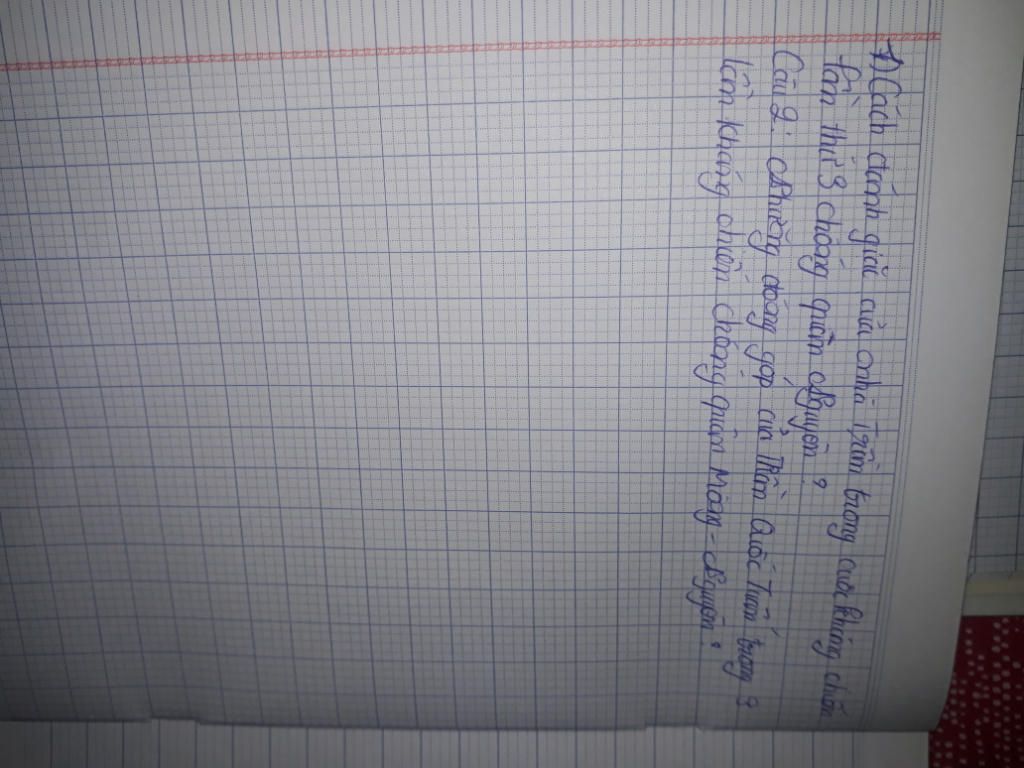 1) Cách đánh giặc của nhà Trần trong cuộc kháng chiến
lần thứ 3 chống quân Nguyên ?
Câu 2: Những đóng góp của Trần Quốc Tuấn trong 3
lần kháng chiến chống quân Mông - Nguyên ?